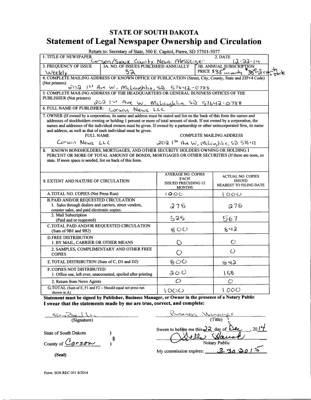 STATE OF SOUTH DAKOTA
Statement of Legal Newspaper Ownership and Circulation
Return to: Secretary of State, 500 E. Capitol, Pierre, SD 57501-5077
1. TITLE OF NEWSPAPER 2. DATE
Corson/Sioux County News Messenger 12-22-14
3. FREQUENCY OF ISSUE 3A. NO. OF ISSUES PUBLISHED ANNUALLY 3B. ANNUAL SUBSCRIPTION
Weekly 52 PRICE $35
4. COMPLETE MAILING ADDRESS OF KNOWN OFFICE OF PUBLICATION (Street, City, County, State and ZIP+4 Code)
(Not printers)
202 1st Ave W, McLaughlin, SD 57642-0788
5. COMPLETE MAILING ADDRESS OF THE HEADQUARTERS OR GENERAL BUSINESS OFFICES OF THE
PUBLISHER (Not printers)
202 1st Ave W, McLaughlin, SD 57642-0788
6. FULL NAME OF PUBLISHER:
Corson News LLC
7. OWNER (If owned by a corporation, its name and address must be stated and list on the back of this form the names and
addresses of stockholders owning or holding 1 percent or more of total amount of stock. If not owned by a corporation, the
names and addresses of the individual owners must be given. If owned by a partnership or other unincorporated firm, its name
and address, as well as that of each individual must be given.
FULL NAME COMPLETE MAILING ADDRESS
Corson News LLC 202 1st Ave W, McLaughlin, SD
8. KNOWN BONDHOLDERS, MORTGAGES, AND OTHER SECURITY HOLDERS OWNING OR HOLDING 1
PERCENT OR MORE TOTAL AMOUNT OF BONDS, MORTGAGES OR OTHER SECURITIES (If there are none, so
state. If more space is needed, list on back of this form.
9. EXTENT AND NATURE OF CIRCULATION
AVERAGE NO. COPIES
EACH
ISSUED PRECEDING 12
MONTHS
ACTUAL NO. COPIES
ISSUED
NEAREST TO FILING DATE
A. TOTAL NO. COPIES (Net Press Run) 1000 1000
B. PAID AND/OR REQUESTED CIRCULATION
1. Sales through dealers and carriers, street vendors,
counter sales, and paid electronic copies 275 275
2. Mail Subscription
(Paid and or requested) 525 567
C. TOTAL PAID AND/OR REQUESTED CIRCULATION
(Sum of 9B1 and 9B2) 800 842
D. FREE DISTRIBUTION
1. BY MAIL, CARRIER OR OTHER MEANS 0 0
2. SAMPLES, COMPLIMENTARY AND OTHER FREE
COPIES 0 0
E. TOTAL DISTRIBUTION (Sum of C, D1 and D2) 800 842
F. COPIES NOT DISTRIBUTED
1. Office use, left over, unaccounted, spoiled after printing 200 158
2. Return from News Agents 0 0
G. TOTAL (Sum of E, F1 and F2 - Should equal net press run
shown in A) 1000 1000
Statement must be signed by Publisher, Business Manager, or Owner in the presence of a Notary Public
I swear that the statements made by me are true, correct, and complete:
Business Manager
(Signature) (Title)
State of South Dakota )
) §
County of Corson )
Sworn to before me this 22 day of Dec, 2014
Notary Public
(Seal) My commission expires:
Form: SOS REC 051 8/2014